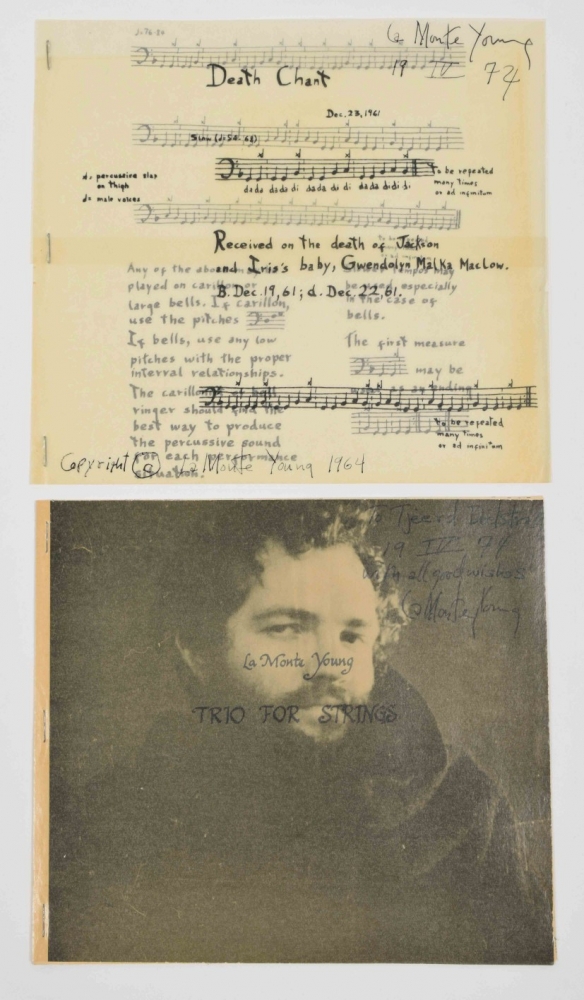 La Monte Young
19 IV 74
Death Chant
Dec. 23, 1961
d. percussive slap
on thigh
d= male voices
da da da da di da da du di da da di di di
To be repeated
many times
or ad infinitum
Received on the death of Jackson
and Iris's baby, Gwendolyn Malka MacLow.
B. Dec. 19, 61; d. Dec. 22, 61.
Any of the
played on carillon or
large bells. If carillon,
use the pitches
If bells, use any low
pitches with the proper
interval relationships.
The carillon
ringer should find the
best way to produce
the percussive sound
for each performance
situation.
may
be used, especially
in the case of
bells.
The first measure
may be
an ending
To be repeated
many times
or ad infinitum
Copyright © La Monte Young 1964
To Tjeerd
19 IV 74
with all good wishes
La Monte Young
La Monte Young
TRIO FOR STRINGS